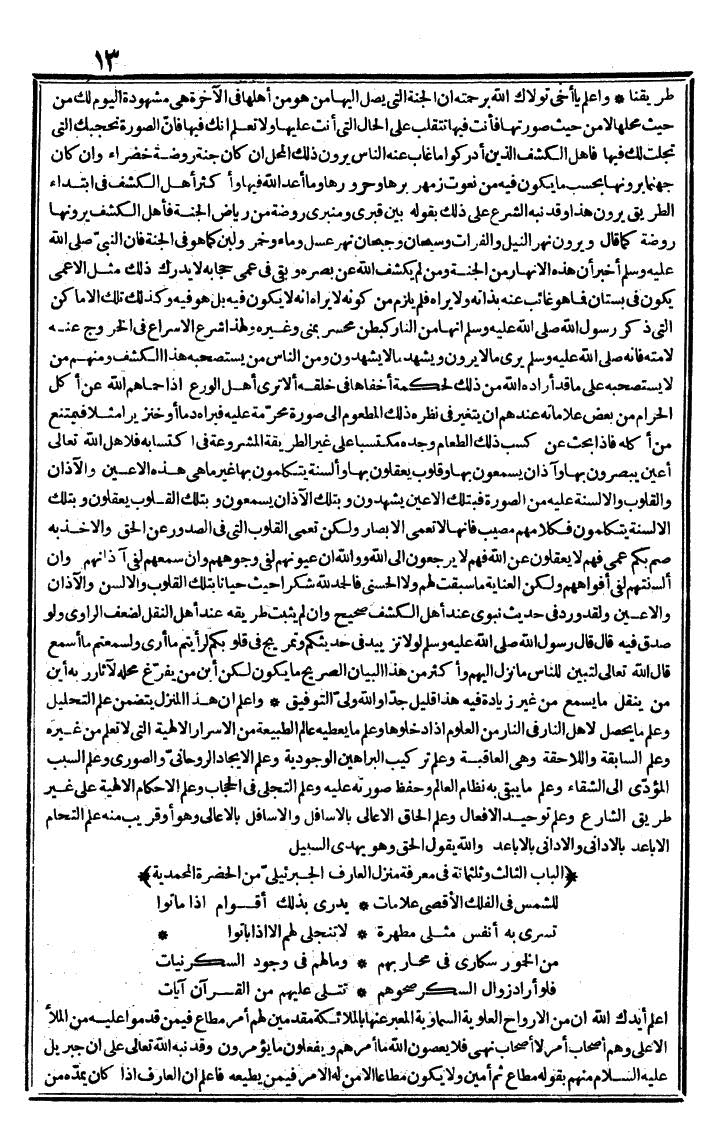 ١٣
طريقنا * واعلم يا أخى تولاك الله برحمته ان الجنة التى يصل اليها من هو من أهلها فى الآخرة هى مشهودة اليوم لك من
حيث محلها لا من حيث صورتها فأنت فيها تتقلب على الحال التى أنت عليها ولا تعلم انك فيها فان الصورة تحجبك التى
تجلت لك فيها فأهل الكشف الذين أدركوا ما غاب عنه الناس يرون ذلك المحل ان كان جنة روضة خضراء وان كان
جهنما يرونها بحسب ما يكون فيه من نعوت زمهريرها وحرورها وما أعد الله فيها وأكثر أهل الكشف فى ابتداء
الطريق يرون هذا وقد نبه الشرع على ذلك بقوله بين قبرى ومنبرى روضة من رياض الجنة فأهل الكشف يرونها
روضة كما قال ويرون نهر النيل والفرات وسيحان وجيحان نهر عسل وماء وخمر ولبن كما هو فى الجنة فان النبىّ صلى الله
عليه وسلم أخبر أن هذه الانهار من الجنة ومن لم يكشف الله عن بصره وبقى فى عمى حجابه لا يدرك ذلك مثل الاعمى
يكون فى بستان فما هو غائب عنه بذاته ولا يراه فلم يلزم من كونه لا يراه انه لا يكون فيه بل هو فيه وكذلك تلك الاماكن
التى ذكر رسول الله صلى الله عليه وسلم انها من النار كبطن محسر بمنى وغيره ولهذا شرع الاسراع فى الخروج عنه
لامته فانه صلى الله عليه وسلم يرى ما لا يرون ويشهد ما لا يشهدون ومن الناس من يستصحبه هذا الكشف ومنهم من
لا يستصحبه على ما قد أراده الله من ذلك لحكمة أخفاها فى خلقه ألا ترى أهل الورع اذا حماهم الله عن أكل
الحرام من بعض علاماته عندهم ان يتغير فى نظره ذلك المطعوم الى صورة محرّمة عليه فيراه دما أو خنزيرا مثلا فيمتنع
من أكله فاذا بحث عن كسب ذلك الطعام وجده مكتسبا على غير الطريقة المشروعة فى اكتسابه فلاهل الله تعالى
أعين يبصرون بها وآذان يسمعون بها وقلوب يعقلون بها وألسنة يتكلمون بها غير ما هى هذه الاعين والآذان
والقلوب والالسنة عليه من الصورة فبتلك الاعين يشهدون وبتلك الآذان يسمعون وبتلك القلوب يعقلون وبتلك
الالسنة يتكلمون فكلامهم مصيب فانها لا تعمى الابصار ولكن تعمى القلوب التى فى الصدور عن الحق والاخذ به
صم بكم عمى فهم لا يعقلون عن الله فهم لا يرجعون الى الله ووالله ان عيونهم لفى وجوههم وان سمعهم لفى آذانهم وان
ألسنتهم لفى أفواههم ولكن العناية ما سبقت لهم ولا الحسنى فالحمد لله شكرا حيث حيانا بتلك القلوب والالسن والآذان
والاعين ولقد ورد فى حديث نبوى عند أهل الكشف صحيح وان لم يثبت طريقه عند أهل النقل لضعف الراوى ولو
صدق فيه قال قال رسول الله صلى الله عليه وسلم لولا تزييد فى حديثكم وتمريج فى قلوبكم لرأيتم ما أرى ولسمعتم ما أسمع
قال الله تعالى لتبين للناس ما نزل اليهم وأكثر من هذا البيان الصريح ما يكون لكن أين من يفرّغ محله لآثار ربه أين
من ينقل ما يسمع من غير زيادة فيه هذا قليل جدّا والله ولىّ التوفيق * واعلم ان هذا المنزل يتضمن علم التحليل
وعلم ما يحصل لاهل النار فى النار من العلوم اذا دخلوها وعلم ما يعطيه عالم الطبيعة من الاسرار الالهية التى لا تعلم من غيره
وعلم السابقة واللاحقة وهى العاقبة وعلم تركيب البراهين الوجودية وعلم الايجاد الروحانىّ والصورى وعلم السبب
المؤدّى الى الشقاء وعلم ما يبقى به نظام العالم وحفظ صورته عليه وعلم التجلى فى الحجاب وعلم الاحكام الالهية على غير
طريق الشارع وعلم توحيد الافعال وعلم الحاق الاعالى بالاسافل والاسافل بالاعالى وهو أو قريب منه علم التحام
الاباعد بالادانى والادانى بالاباعد والله يقول الحق وهو يهدى السبيل
﴿الباب الثالث وثلثمائة فى معرفة منزل العارف الجبرئيلىّ من الحضرة المحمدية﴾
للشمس فى الفلك الأقصى علامات * يدرى بذلك أقوام اذا ماتوا
تسرى به أنفس مثلى مطهرة * لا تنجلى لهم الا اذا باتوا *
من الخور سكارى فى محاربهم * وما لهم فى وجود السكر نيات
فلو أراد زوال السكر صحوهم * تتلى عليهم من القرآن آيات
اعلم أيدك الله ان من الارواح العلوية السماوية المعبر عنها بالملائكة مقدمين لهم أمر مطاع فيمن قدموا عليه من الملأ
الاعلى وهم أصحاب أمر لا أصحاب نهى فلا يعصون الله ما أمرهم ويفعلون ما يؤمرون وقد نبه الله تعالى على ان جبريل
عليه السلام منهم بقوله مطاع ثم أمين ولا يكون مطاعا الا من له الامر فيمن يطيعه فاعلم ان العارف اذا كان يمدّه من